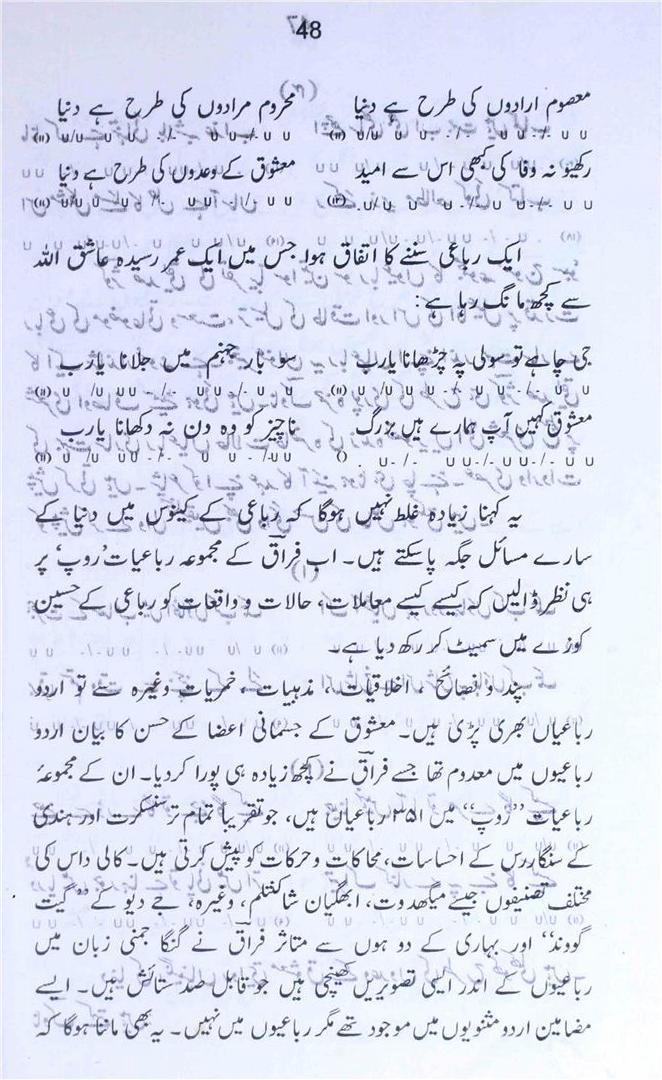 48
معصوم ارادوں کی طرح ہے دنیا محروم مرادوں کی طرح ہے دنیا
رکھیو نہ وفا کی کبھی اس سے امید معشوق کے وعدوں کی طرح ہے دنیا
ایک رباعی سننے کا اتفاق ہوا جس میں ایک عمر رسیدہ عاشق اللہ
سے کچھ مانگ رہا ہے:
جی چاہے تو سولی پہ چڑھانا یارب سو بار جہنم میں جلانا یارب
معشوق کہیں آپ ہمارے ہیں بزرگ ناچیز کو وہ دن نہ دکھانا یارب
یہ کہنا زیادہ غلط نہیں ہوگا کہ رباعی کے کینوس میں دنیا کے
سارے مسائل جگہ پاسکتے ہیں۔ اب فراقؔ کے مجموعہ رباعیات ’روپ‘ پر
ہی نظر ڈالیں کہ کیسے کیسے معاملات، حالات و واقعات کو رباعی کے حسین
کوزے میں سمیٹ کر رکھ دیا ہے۔
پند و نصائح، اخلاقیات، مذہبیات، خمریات وغیرہ سے تو اردو
رباعیاں بھری پڑی ہیں۔ معشوق کے جسمانی اعضا کے حسن کا بیان اردو
رباعیوں میں معدوم تھا جسے فراقؔ نے کچھ زیادہ ہی پورا کردیا۔ ان کے مجموعۂ
رباعیات ’’رُوپ‘‘ میں ۳۵۱ رباعیاں ہیں، جو تقریباً تمام تر سنسکرت اور ہندی
کے سنگار رس کے احساسات، محاکات و حرکات کو پیش کرتی ہیں۔ کالی داس کی
مختلف تصنیفوں جیسے میگھدوت، ابھگیان شاکنتلم، وغیرہ، جے دیو کے ’’گیت
گووند‘‘ اور بہاری کے دو ہوں سے متاثر فراقؔ نے گنگا جمنی زبان میں
رباعیوں کے اندر ایسی تصویریں کھینچی ہیں جو قابل صد ستائش ہیں۔ ایسے
مضامین اردو مثنویوں میں موجود تھے مگر رباعیوں میں نہیں۔ یہ بھی ماننا ہوگا کہ